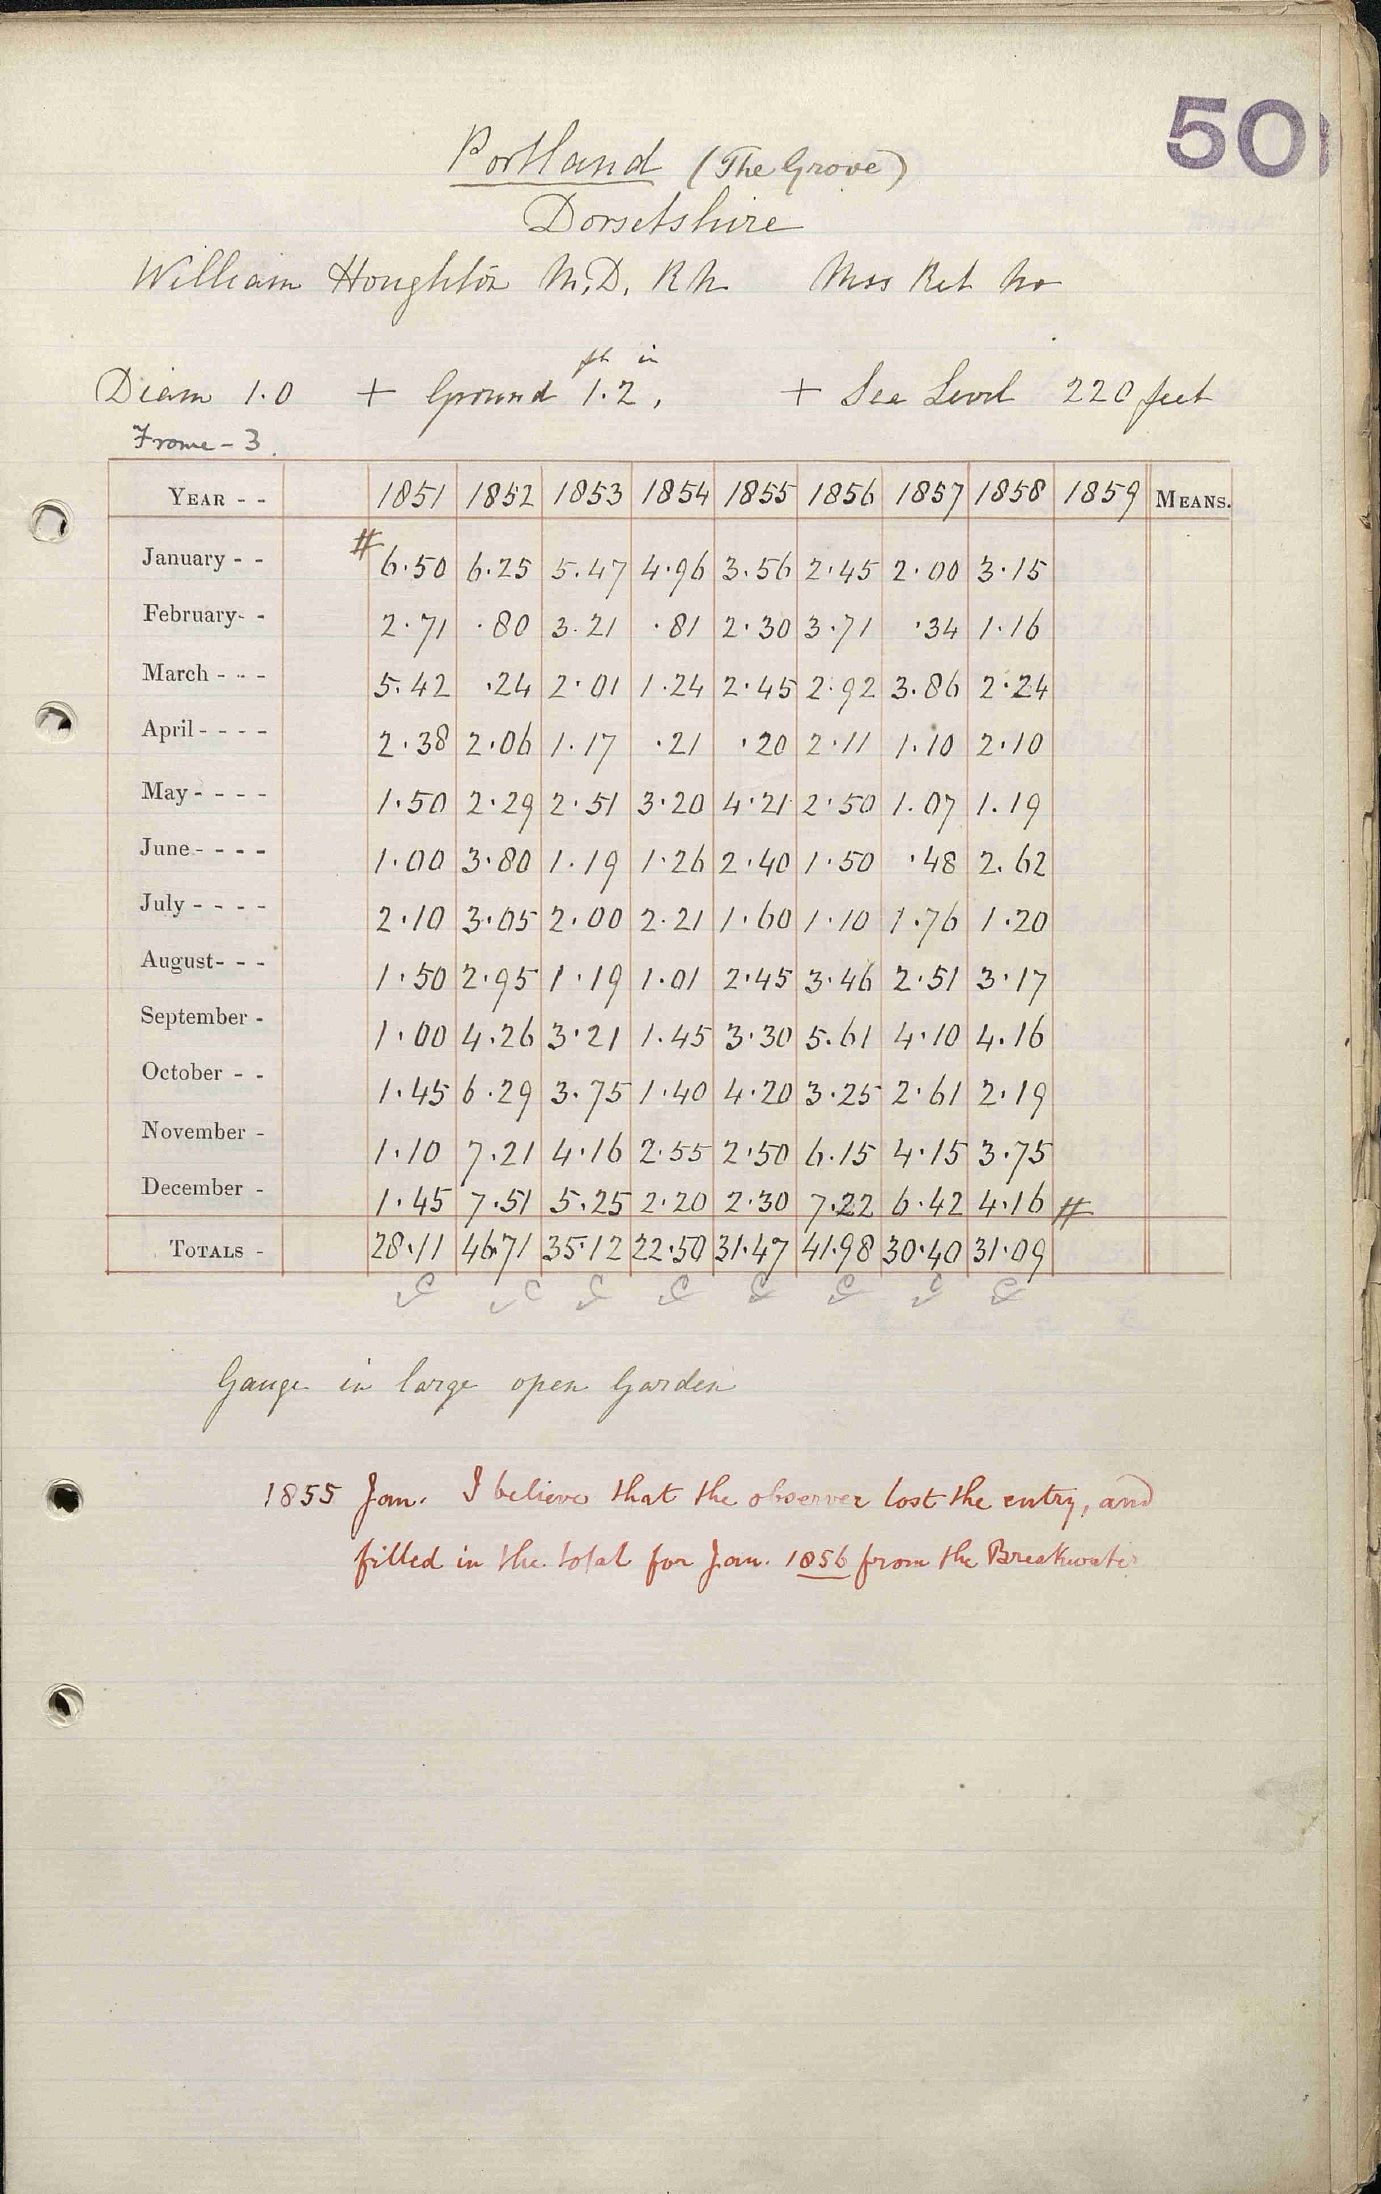 50
Portland (The Grove)
Dorsetshire
William Houghton M.D. R.N. Mss Ret No
ft in
Diam 1.0 + Ground 1.2, + Sea Level 220 feet
Frome - 3.
YEAR - - 1851 1852 1853 1854 1855 1856 1857 1858 1859 MEANS.
January - - # 6.50 6.25 5.47 4.96 3.56 2.45 2.00 3.15
February- - 2.71 .80 3.21 .81 2.30 3.71 .34 1.16
March - - - 5.42 .24 2.01 1.24 2.45 2.92 3.86 2.24
April - - - - 2.38 2.06 1.17 .21 .20 2.11 1.10 2.10
May - - - - 1.50 2.29 2.51 3.20 4.21 2.50 1.07 1.19
June - - - - 1.00 3.80 1.19 1.26 2.40 1.50 .48 2.62
July - - - - 2.10 3.05 2.00 2.21 1.60 1.10 1.76 1.20
August- - - 1.50 2.95 1.19 1.01 2.45 3.46 2.51 3.17
September - 1.00 4.26 3.21 1.45 3.30 5.61 4.10 4.16
October - - 1.45 6.29 3.75 1.40 4.20 3.25 2.61 2.19
November - 1.10 7.21 4.16 2.55 2.50 6.15 4.15 3.75
December - 1.45 7.51 5.25 2.20 2.30 7.22 6.42 4.16 #
TOTALS - 28.11 46.71 35.12 22.50 31.47 41.98 30.40 31.09
C C C C C C C C
Gauge in large open Garden
1855 Jan. I believe that the observer lost the entry, and
filled in the total for Jan. 1856 from the Breakwater